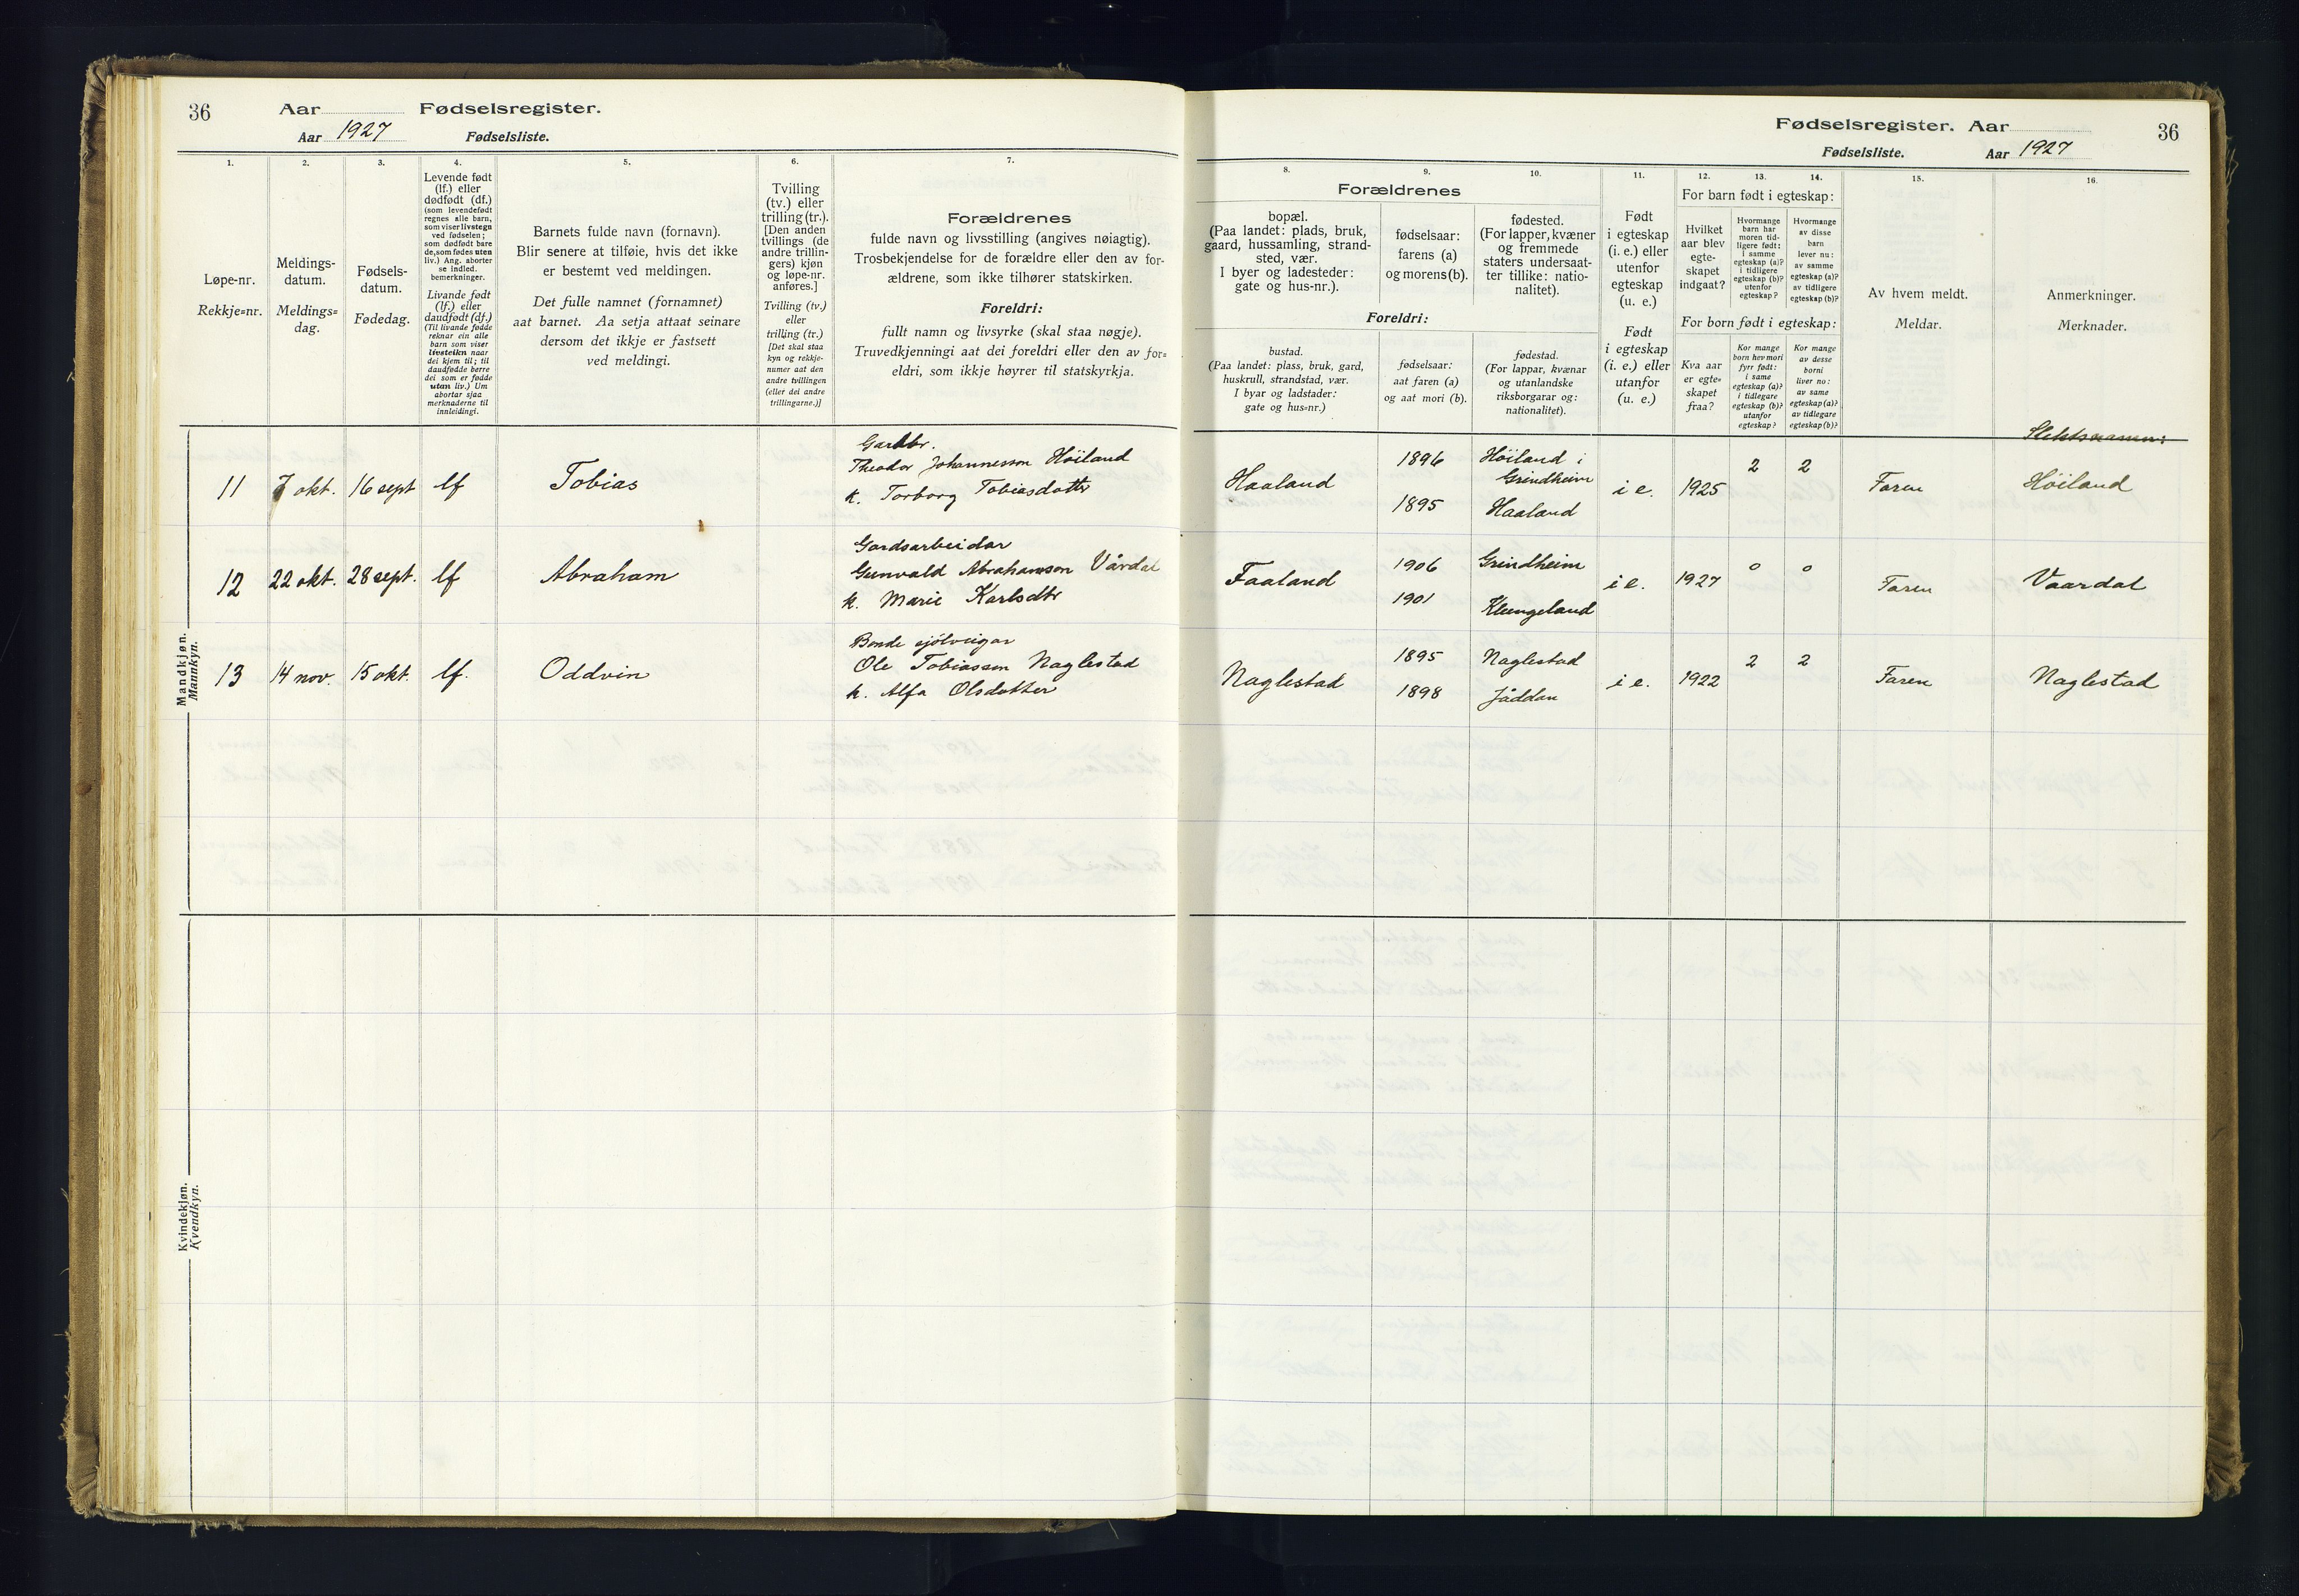 36
Aar
Fødselsregister.
Aar 1927
Fødselsliste.
1.
Løpe-nr.
Rekkje=nr.
2.
Meldings-
datum.
Meldings=
dag.
3.
Fødsels-
datum.
Fødedag.
4.
Levende født
(lf.) eller
dødfødt (df.)
(som levendefødt
regnes alle barn,
som viser livstegn
ved fødselen;
som dødfødt bare
de, som fødes uten
liv.) Ang. aborter
se indled.
bemerkninger.
Livande født
(lf.) eller
daudfødt (df.)
(Til livande fødde
reknar ein alle
barn som viser
livsteikn naar
dei kjem til; til
daudfødde berre
dei som er fødde
utan liv.) Um
abortar sjaa
merknaderne til
innleidingi.
5.
Barnets fulde navn (fornavn).
Blir senere at tilføie, hvis det ikke
er bestemt ved meldingen.
Det fulle namnet (fornamnet)
aat barnet. Aa setja attaat seinare
dersom det ikkje er fastsett
ved meldingi.
6.
Tvilling
(tv.) eller
trilling (tr.).
[Den anden
tvillings (de
andre trillin-
gers) kjøn
og løpe-nr.
anføres.]
Tvilling (tv.)
eller
trilling (tr.)
[Det skal staa
kyn og rekkje-
numer aat den
andre tvillingen
(eller dei andre
trillingarne.)]
7.
Forældrenes
fulde navn og livsstilling (angives nøiagtig).
Trosbekjendelse for de forældre eller den av for-
ældrene, som ikke tilhører statskirken.
Foreldri:
fullt namn og livsyrke (skal staa nøgje).
Truvedkjenningi aat dei foreldri eller den av for=
eldri, som ikkje høyrer til statskyrkja.
Mandkjøn.
Mannkyn.
11 7 okt. 16 sept lf Tobias
Theodor Johannesson Høiland
k. Torborg Tobiasdotter
12 22 okt. 28 sept. lf Abraham
Gardsarbeidar
Gunvald Abrahamson Vårdal
k. Marie Karlsdtr
13 14 nov. 15 okt. lf. Oddvin
Bonde sjølveigar
Ole Tobiassen Naglestad
k. Alfa Olsdotter
Kvindekjøn.
Kvendkyn.
Fødselsregister. Aar
36
Fødselsliste.
Aar 1927
8.
9.
10.
Forældrenes
bopæl.
(Paa landet: plads, bruk,
gaard, hussamling, strand-
sted, vær.
I byer og ladesteder:
gate og hus-nr.).
fødselsaar:
farens (a)
og morens (b).
fødested.
(For lapper, kvæner
og fremmede
staters undersaat-
ter tillike: natio-
nalitet).
Foreldri:
bustad.
(Paa landet: plass, bruk, gard,
huskrull, strandstad, vær.
I byar og ladstader:
gate og hus=nr.)
fødselsaar:
aat faren (a)
og aat mori (b).
fødestad.
(For lappar, kvænar
og utanlandske
riksborgarar og:
nationalitet).
11.
Født
i egteskap
(i. e.) eller
utenfor
egteskap
(u. e.)
Født
i egteskap
(i. e.) eller
utanfor
(u. e.)
12.
13.
14.
For barn født i egteskap:
Hvilket
aar blev
egte-
skapet
indgaat?
Hvormange
barn har
moren tid-
ligere født:
i samme
egteskap (a)?
i tidligere
egteskap (b)?
utenfor
egteskap?
Hvormange
av disse
barn
lever nu:
av samme
egteskap (a)?
av tidligere
egteskap (b)?
For born født i egteskap:
Kva aar
er egte=
skapet
fraa?
Kor mange
born hev mori
fyrr født:
i same
egteskap (a)?
i tidlegare
egteskap (b)?
utanfor
egteskap?
Kor mange
av desse
borni
liver no:
av same
egteskap (a)?
av tidlegare
egteskap (b)?
15.
Av hvem meldt.
Meldar.
16.
Anmerkninger.
Merknader.
Slektsnamn:
Haaland 1896 Høiland i
Grindheim
1895 Haaland
i e. 1925 2 2 Faren Høiland
Faaland 1906 Grindheim
1901 Klungeland
i e. 1927 0 0 Faren Vaardal
Naglestad 1895 Naglestad
1898 Jåddan
i e. 1922 2 2 Faren Naglestad